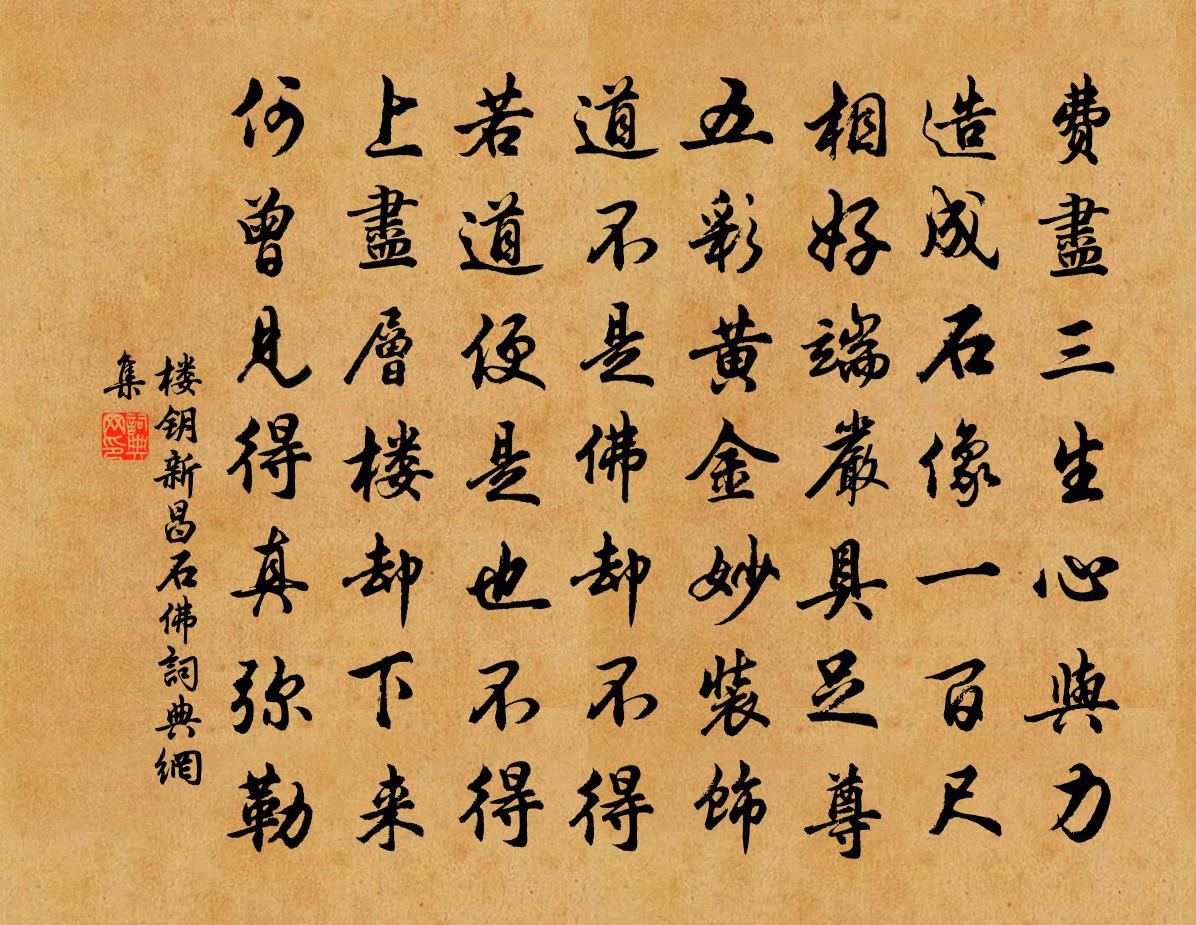 费盡三生心與力
造成石像一百尺
相好端嚴具足尊
五彩黄金妙裝飾
道不是佛却不得
若道便是也不得
上盡層楼却下来
何曾見得真弥勒
楼钥新昌石佛詞典網
集
詞典网印